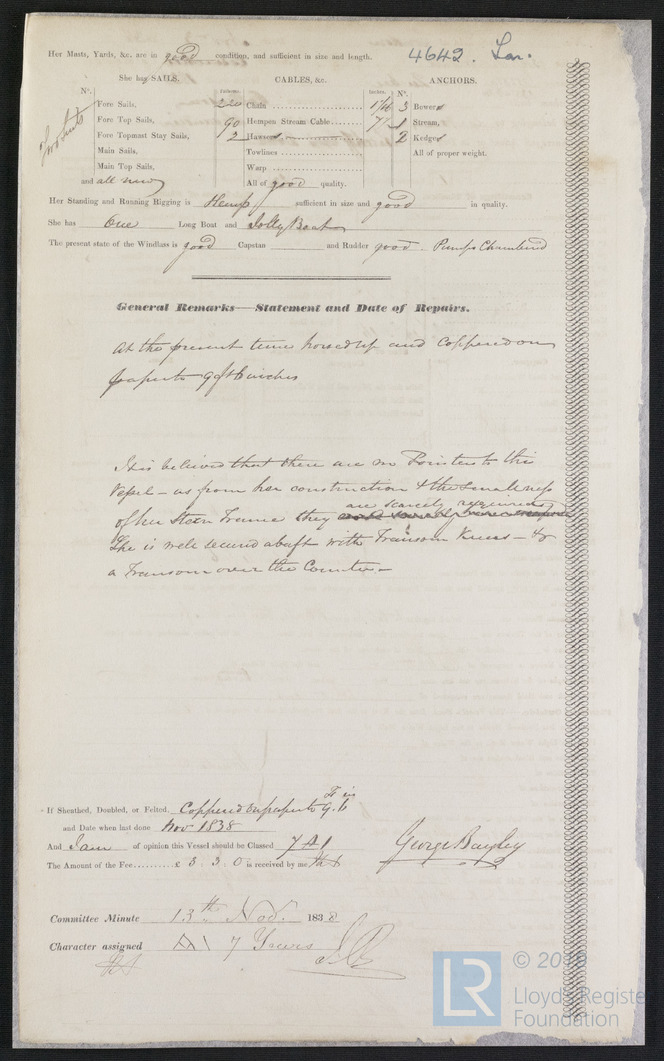 Her Masts, Yards, &c. are in good condition, and sufficient in size and length. 4642. Lon.
She has SAILS. CABLES, &c. ANCHORS.
N°. Fathoms. Inches. N°.
Two Suits
Fore Sails, 200 Chain 1 1/16 3 Bowers
Fore Top Sails, 90 Hempen Stream Cable 7 1 Stream,
Fore Topmast Stay Sails, 2 Hawsers 2 Kedges
Main Sails, Towlines All of proper weight.
Main Top Sails, Warp
and all new All of good quality.
Her Standing and Running Rigging is Hemp sufficient in size and good in quality.
She has One Long Boat and Jolly Boat
The present state of the Windlass is good Capstan and Rudder good Pumps Chambered
General Remarks—Statement and Date of Repairs.
At the present time horsed up and Coppered on
paper to 9 ft 6 inches
It is believed that there are no Pointers to this
Vessel – as from her construction & the smallness
are scarcely required
of her Stern Frame they
She is well secured abaft with Transom Knees – &
a Transom over the Counter –
If Sheathed, Doubled, or Felted. Coppered on paper to 9. 6
Ft in
and Date when last done Nov 1838
And I am of opinion this Vessel should be Classed 7 A 1
George Bayley
The Amount of the Fee £ 3 3 0 is received by me
Committee Minute 13th Nov. 1838
Character assigned A1 7 Years
© 20
Lloyd's Register
Foundation
LR